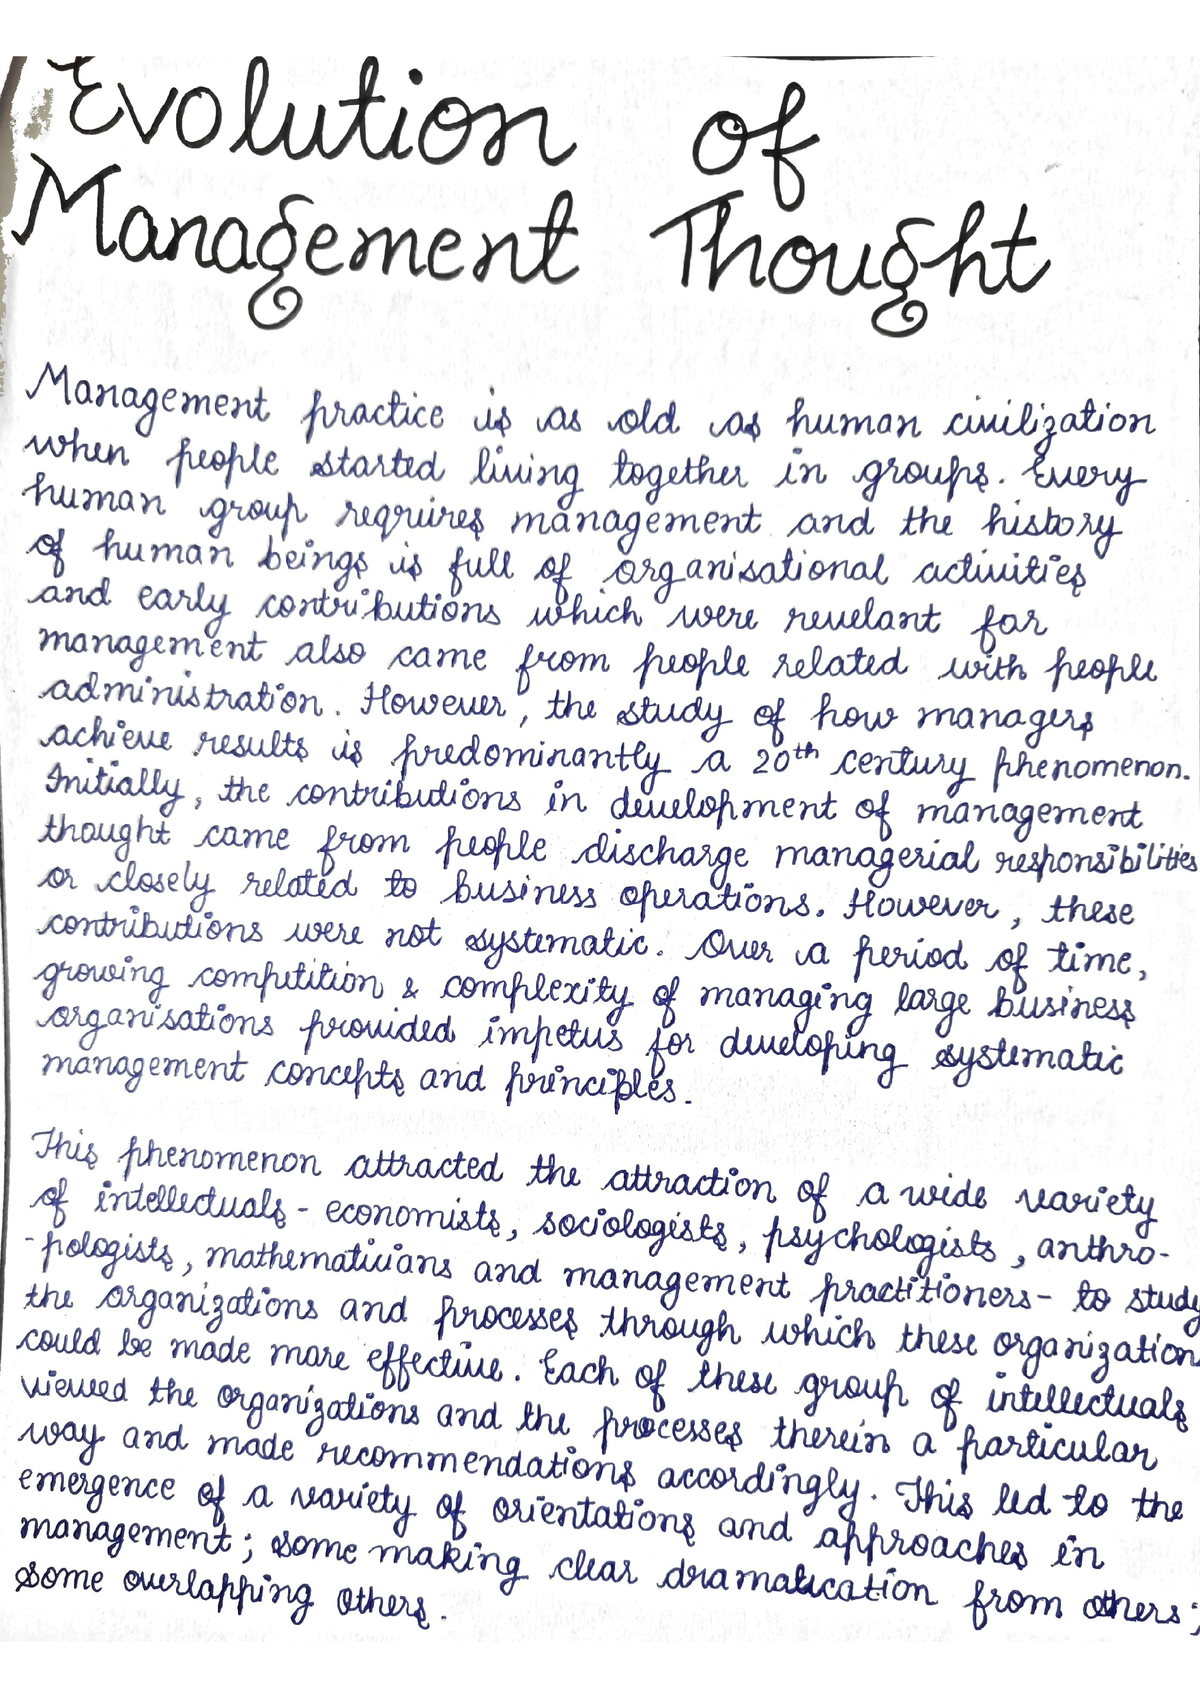 Evolution of
Management Thought
Management practice is as old as human civilization
when people started living together in groups. Every
human group requires management and the history
of human beings is full of organisational activities
and early contributions which were revelant for
management also came from people related with people
administration. However, the study of how managers
achieve results is predominantly a 20th century phenomenon.
Initially, the contributions in development of management
thought came from people discharge managerial responsibilities
or closely related to business operations. However, these
contributions were not systematic. Over a period of time,
growing competition & complexity of managing large business
organisations provided impetus for developing systematic
management concepts and principles.
This phenomenon attracted the attraction of a wide variety
of intellectuals - economists, sociologists, psychologists, anthro-
-pologists, mathematicians and management practitioners - to study
the organizations and processes through which these organization
could be made more effective. Each of these group of intellectuals
viewed the organizations and the processes therein a particular
way and made recommendations accordingly. This led to the
emergence of a variety of orientations and approaches in
management; some making clear dramatication from others;
some overlapping others.